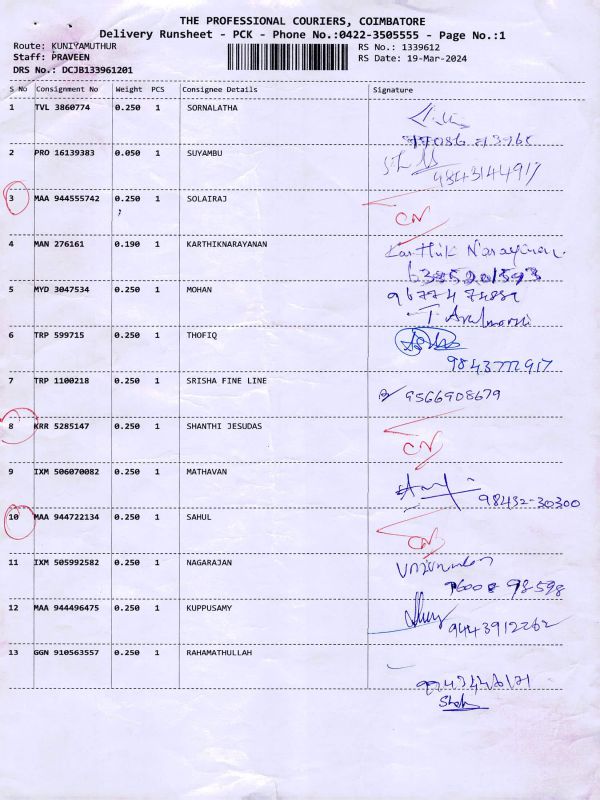 THE PROFESSIONAL COURIERS, COIMBATORE
Delivery Runsheet - PCK - Phone No.:0422-3505555 - Page No.:1
Route: KUNIYAMUTHUR
RS No.: 1339612
Staff: PRAVEEN
RS Date: 19-Mar-2024
DRS No.: DCJB133961201
S No Consignment No Weight PCS Consignee Details Signature
1 TVL 3860774 0.250 1 SORNALATHA
2 PRO 16139383 0.050 1 SUYAMBU
9843144917
3 MAA 944555742 0.250 1 SOLAIRAJ
CN
4 MAN 276161 0.190 1 KARTHIKNARAYANAN
Karthik Narayanan
6385201593
5 MYD 3047534 0.250 1 MOHAN
6 TRP 599715 0.250 1 THOFIQ
7 TRP 1100218 0.250 1 SRISHA FINE LINE
9566908679
8 KRR 5285147 0.250 1 SHANTHI JESUDAS
CN
9 IXM 506070082 0.250 1 MATHAVAN
98432-30300
10 MAA 944722134 0.250 1 SAHUL
CN
11 IXM 505992582 0.250 1 NAGARAJAN
12 MAA 944496475 0.250 1 KUPPUSAMY
9443912262
13 GGN 910563557 0.250 1 RAHAMATHULLAH